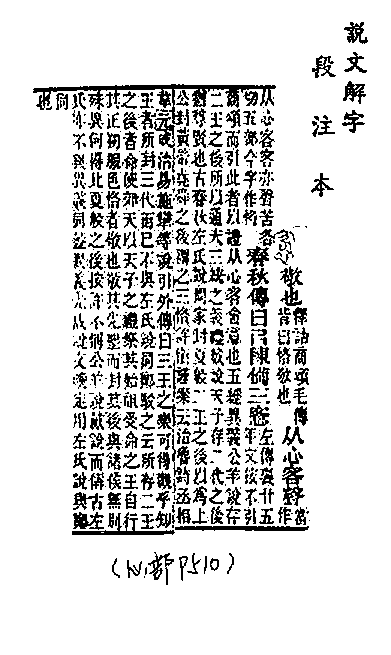 說文解字
段注本
愙
敬也 釋詁商頌毛傳
皆曰恪敬也 从心客聲 當作
从心客客亦聲苦各
切五部今字作恪 春秋傳曰㠯陳備三愙 左傳襄廿五
年文按不引
商頌而引此者以證从心客會意也五經異義公羊說存
二王之後所以通夫三統之義禮戴說天子存二代之後
猶尊賢也古春秋左氏說周家封夏殷二王之後以爲上
公封黃帝堯舜之後謂之三恪許慎謹案云治魯詩丞相
韋玄成治易施犨等說引外傳曰三王之樂可得觀乎知
王者所封三代而已不與左氏說同鄭駮之云所存二王
之後者命使郊天以天子之禮祭其始祖受命之王自行
其正朔服色恪者敬也敬其先聖而封其後與諸侯無
殊異何得比夏殷之後按許不偁公羊說戴說而偁古左
氏 不與異義同蓋異義先成說文後定用左氏說與鄭
同
也
(心部P510)